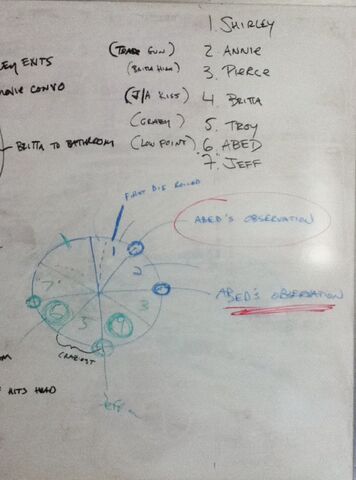 1. SHIRLEY
(TROY GUN) 2. ANNIE
EY ENTS
(BRITTA HIGH) 3. PIERCE
MOVIE CONVO
(J/A KISS) 4. BRITTA
(CRAZY) 5. TROY
BRITTA TO BATHROOM (LOW POINT) 6 ABED
"7." JEFF
FIRST DIE ROLLED
ABED'S OBSERVATION
1
2
ABED'S OBSERVATION
7
3
6
5
4
CRAZIEST
HITS HEAD